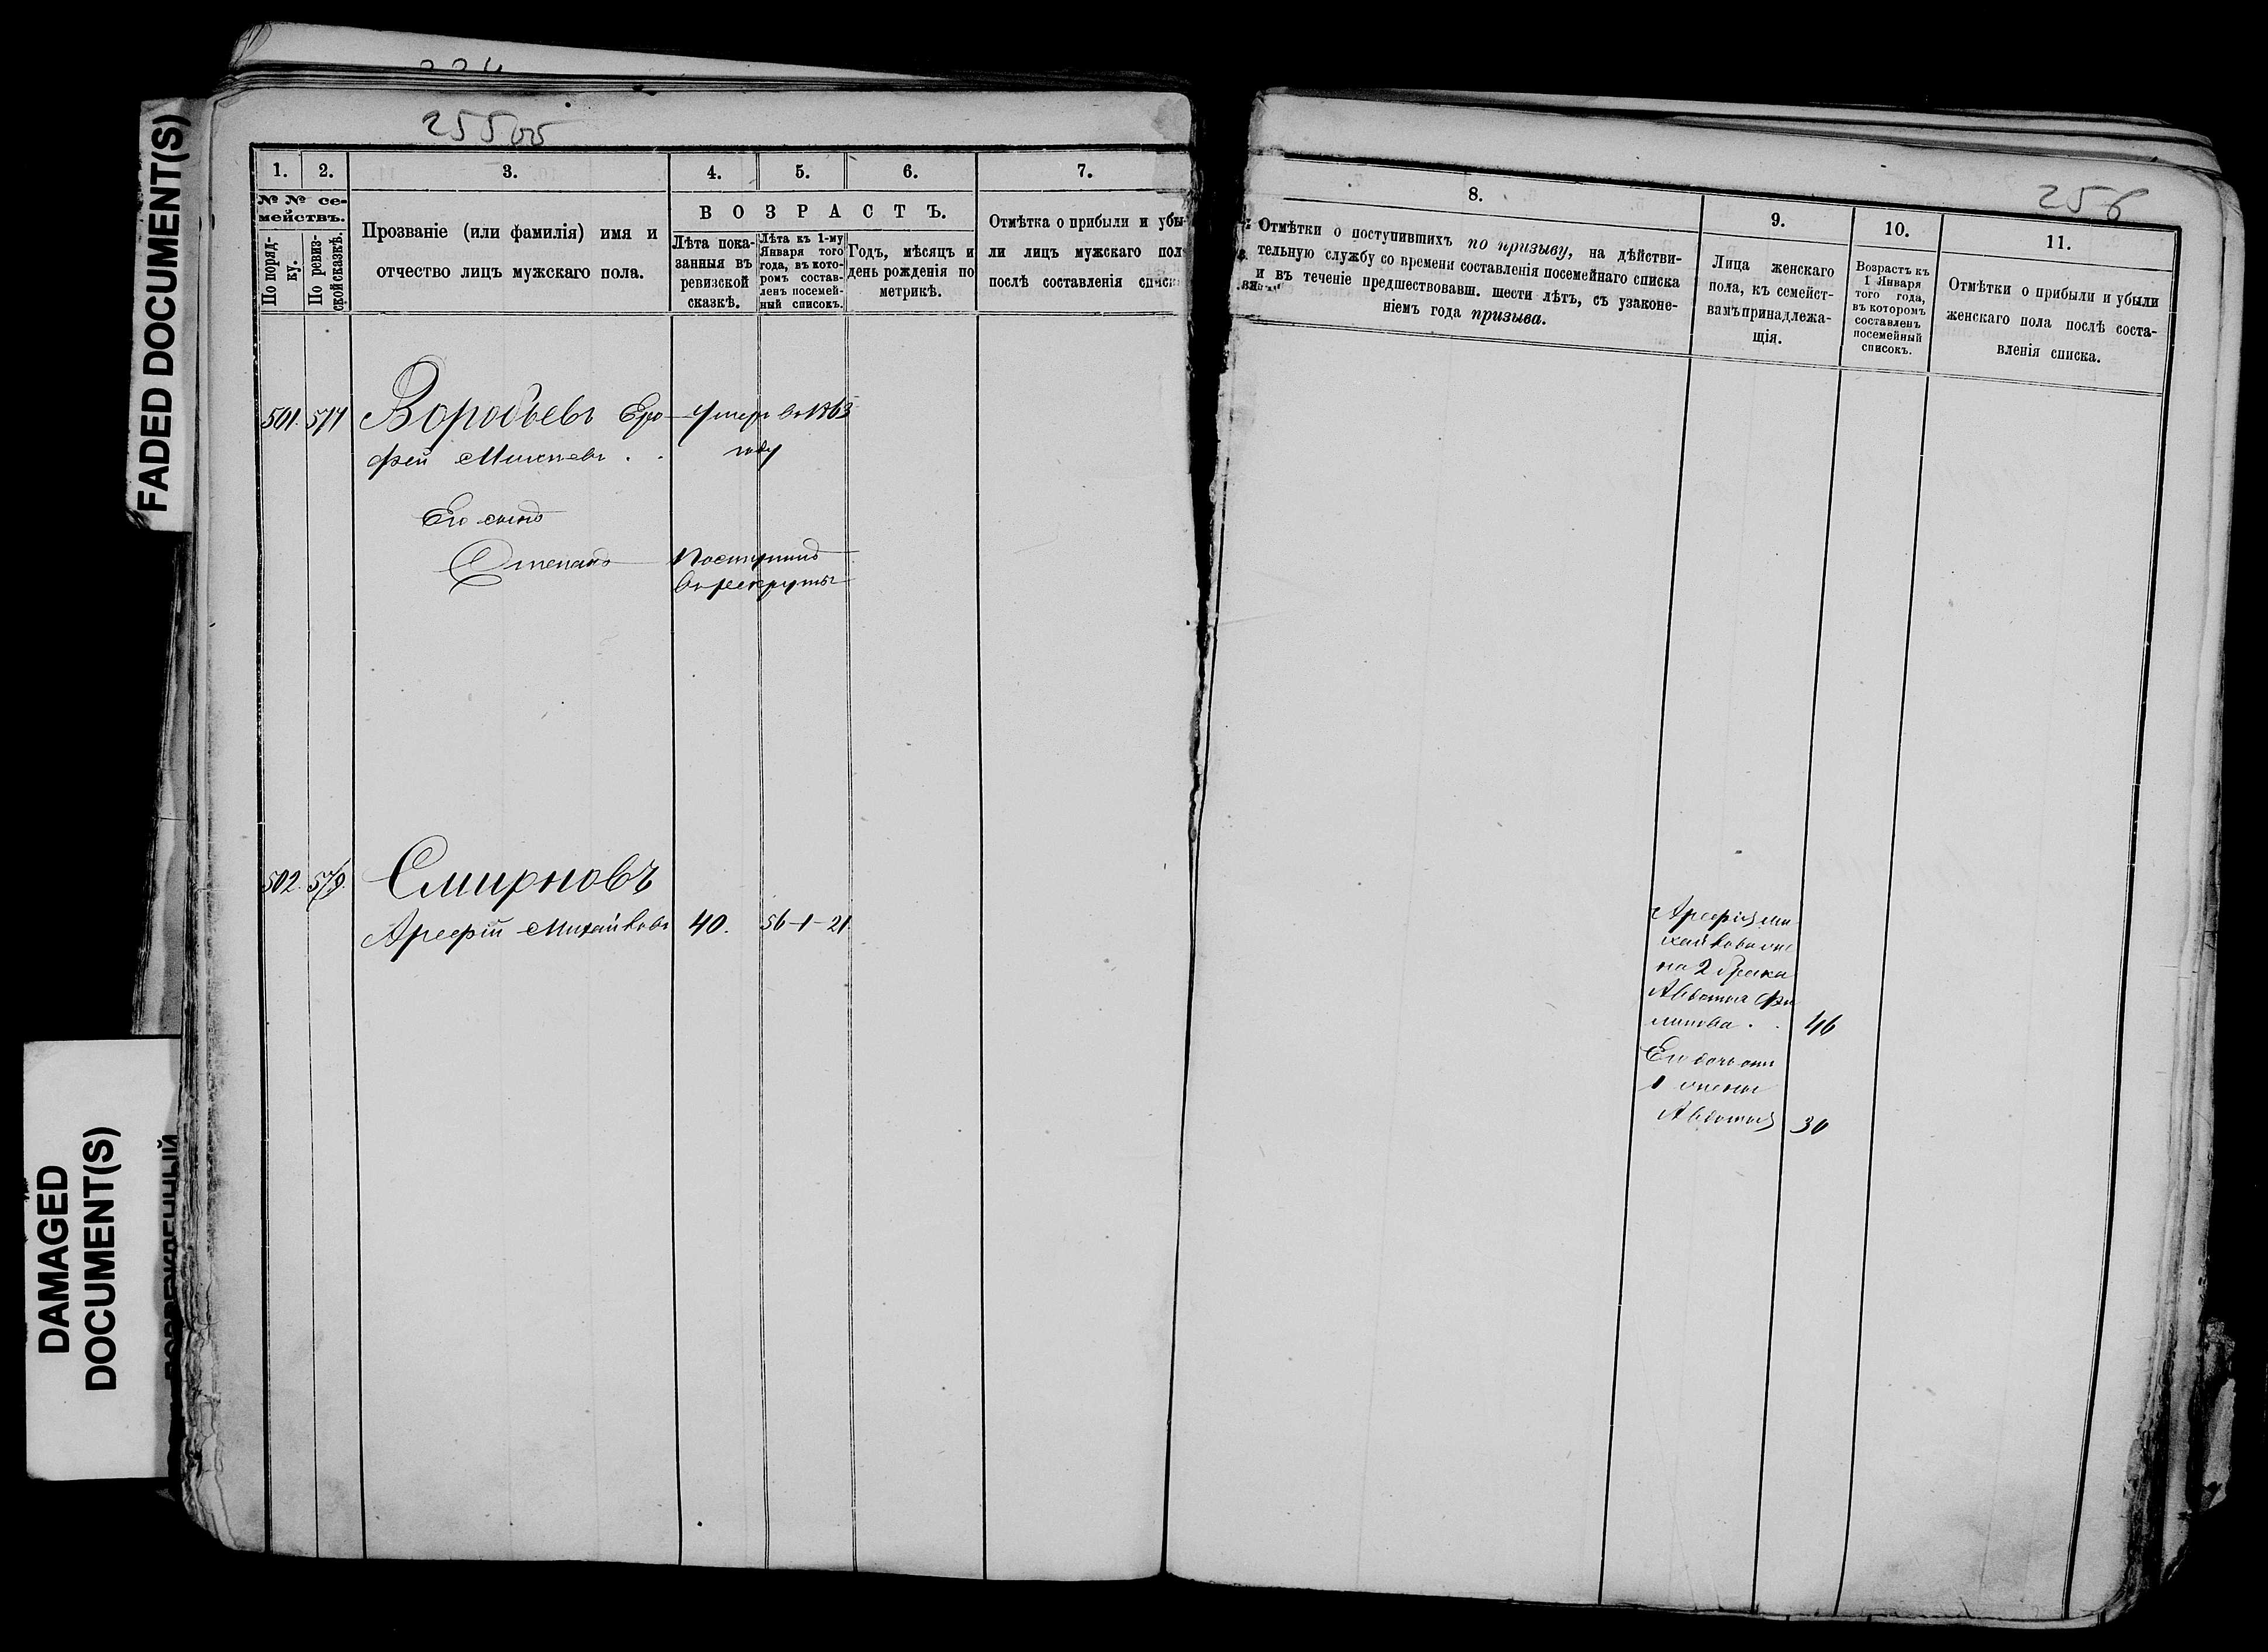 25500
1. 2. 3. 4. 5. 6. 7.
№ № се-
мействъ.
По поряд-
ку.
По ревиз-
ской сказкѣ.
Прозваніе (или фамилія) имя и
отчество лицъ мужскаго пола.
ВОЗРАСТЪ.
Лѣта пока-
занныя въ
ревизской
сказкѣ.
Лѣта къ 1-му
Января того
года, въ кото-
ромъ состав-
ленъ посемей-
ный списокъ.
Годъ, мѣсяцъ и
день рожденія по
метрикѣ.
Отмѣтка о прибыли и убы-
ли лицъ мужскаго пол
послѣ составленія списк
501. Воробьевъ Еро- Умеръ въ 1863
фей году
Его сынъ
Степанъ Поступилъ
въ рекруты
502. 579. Смирновъ
Арефій Михайловъ 40. 56-1-21
256
8. 9. 10. 11.
Отмѣтки о поступившихъ по призыву, на дѣйстви-
тельную службу со времени составленія посемейнаго списка
и въ теченіе предшествовавш. шести лѣтъ, съ узаконе-
ніемъ года призыва.
Лица женскаго
пола, къ семейст-
вамъ принадлежа-
щія.
Возрастъ къ
1 Января
того года,
въ которомъ
составленъ
посемейный
списокъ.
Отмѣтки о прибыли и убыли
женскаго пола послѣ соста-
вленія списка.
Арефія Ми
хайлова же
на 2 брака
Авдотья Фи
липова . . 46
Его дочь отъ
1 жены
Авдотья 30
FADED DOCUMENT(S)
DAMAGED
DOCUMENT(S)